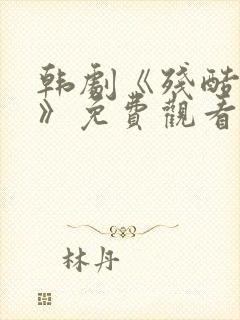 韩劇《殘酷
》免費觀看
林丹